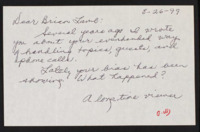 2-26-99
Dear Brian Lamb:
Several years ago I wrote
you about your evenhanded way
of handling topics, guests, and
phone calls.
Lately your bias has been
showing. What happened?
A longtime viewer